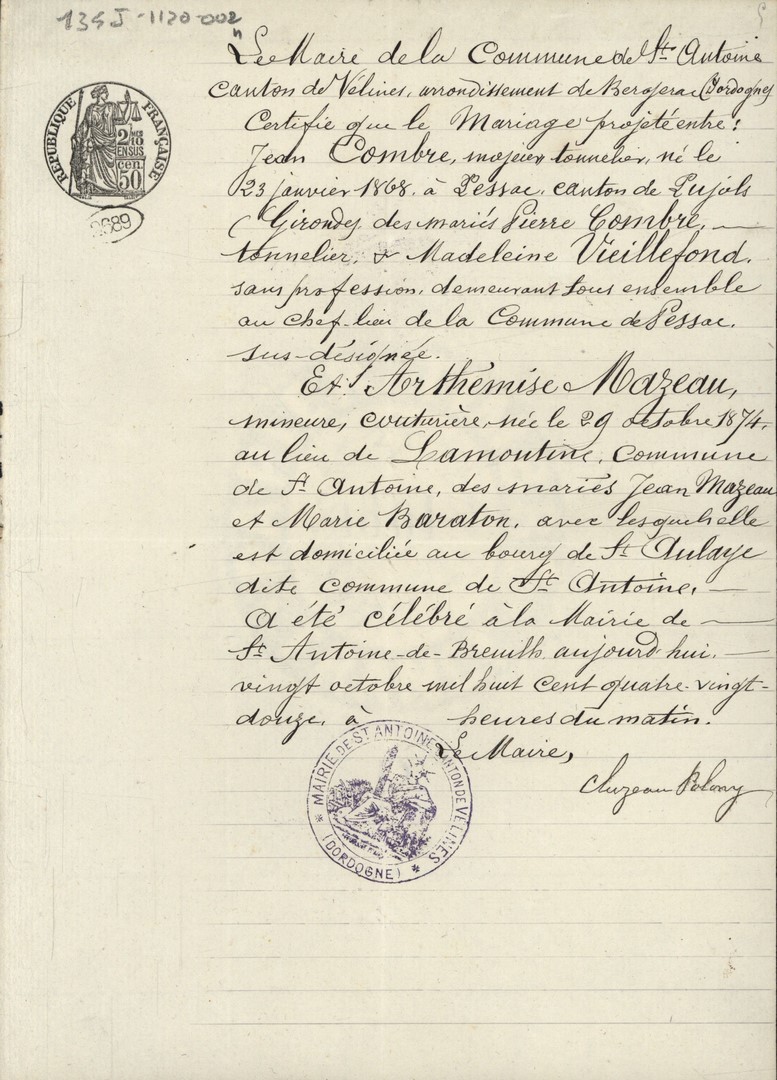 134J-1120-002
RÉPUBLIQUE FRANÇAISE
2/10MES
EN SUS
50 cen
2689
Le Maire de la Commune de St Antoine
canton de Vélines, arrondissement de Bergerac (Dordogne)
Certifie que le Mariage projeté entre :
Jean Combre, majeur, tonnelier, né le
23 janvier 1868 à Pessac, canton de Pujols
(Gironde), des mariés Pierre Combre, —
tonnelier, & Madeleine Vieillefond,
sans profession, demeurant tous ensemble
au chef-lieu de la Commune de Pessac,
sus-désignée.
Et Arthémise Mazeau,
mineure, couturière, née le 29 octobre 1874,
au lieu de Lamoutine, commune
de St Antoine, des mariés Jean Mazeau
et Marie Baraton, avec lesquels elle
est domiciliée au bourg de St Aulaye
dite commune de St Antoine, —
A été célébré à la Mairie de —
St Antoine-de-Breuilh aujourd'hui, —
vingt octobre mil huit cent quatre-vingt-
douze, à heures du matin.
Le Maire,
Cluzeau
MAIRIE DE ST ANTOINE CANTON DE VÉLINES
* (DORDOGNE) *